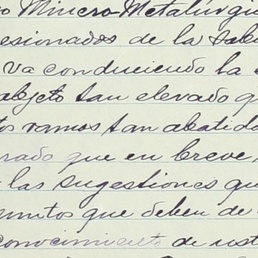 o Minero Metalúrgi
esionados de la
va conduciendo la
objeto tan elevado q
os ramos tan abatido
rado que en breve
las sugestiones qu
suntos que deben de
conocimiento de